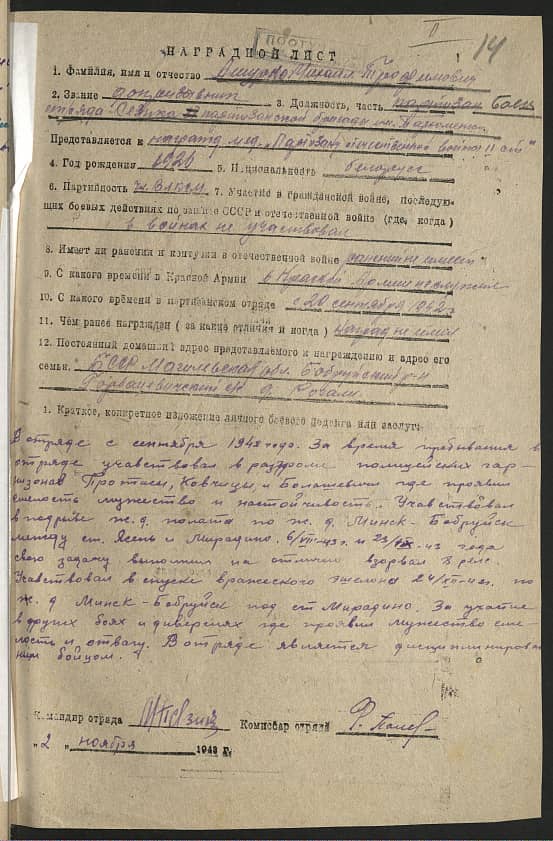 14
НАГРАДНОЙ ЛИСТ
1. Фамилия, имя и отчество Михаил Трофимович
2. Звание допризывник 3. Должность, часть партизан Боец
отряда партизанской бригады им. Пархоменко
Представляется к награде мед. „Партизан отечественной войны II ст"
4. Год рождения 1926 5. Национальность белорусс
6. Партийность чл. ВЛКСМ 7. Участие в гражданской войне, последую-
щих боевых действиях по защите СССР и отечественной войне (где, когда)
в войнах не участвовал
8. Имеет ли ранения и контузии в отечественной войне ранений не имеет
9. С какого времени в Красной Армии в Красной Армии не служил
10. С какого времени в партизанском отряде с 20 сентября 1942 г
11. Чем ранее награжден (за какие отличия и когда) наград не имел
12. Постоянный домашний адрес представляемого к награждению и адрес его
семьи. БССР Магилевская обл. Бобруйский р-н
Горбацевичский с/с д.
1. Краткое, конкретное изложение личного боевого подвига или заслуг
В отряде с сентября 1942 года. За время пребывания в
отряде учавствовал в разгроме полицейских гар-
низонов Протасы, Ковчицы и Болашевичи где проявил
смелость мужество и настойчивость. Учавствовал
в подрыве ж.д. полота по ж.д. Минск-Бобруйск
между ст. Ясень и Мирадино. 6/VIII-43г. и 23 43 года
свою задачу выполнил на отлично взорвал 8 рельс.
Учавствовал в спуске вражеского эшелона 24 по
ж.д Минск-Бобруйск под ст Мирадино. За участие
в других боях и диверсиях где проявил мужество сме-
лость и отвагу. В отряде является дисциплинирован
ным бойцом.
Командир отряда Комиссар отряда
„2" ноября 1943 г.